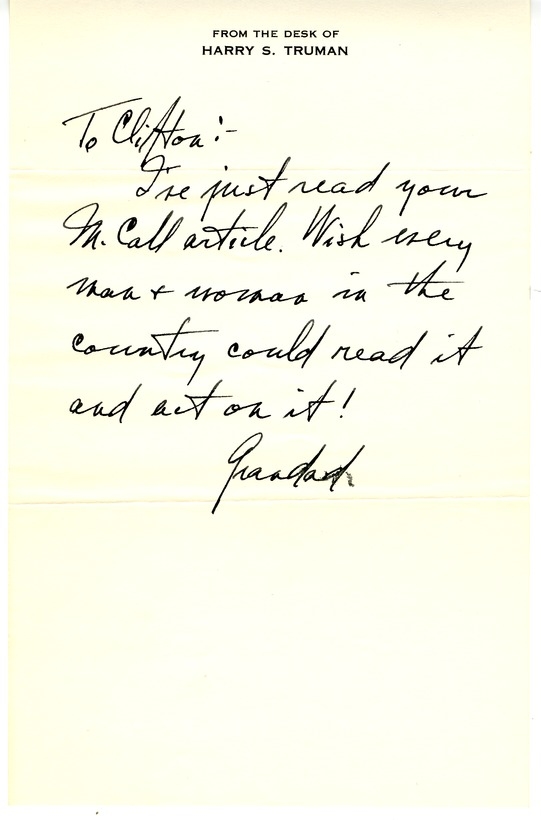 FROM THE DESK OF
HARRY S. TRUMAN
To Clifton:-
I've just read your
McCall article. Wish every
man + woman in the
country could read it
and act on it!
Grandad